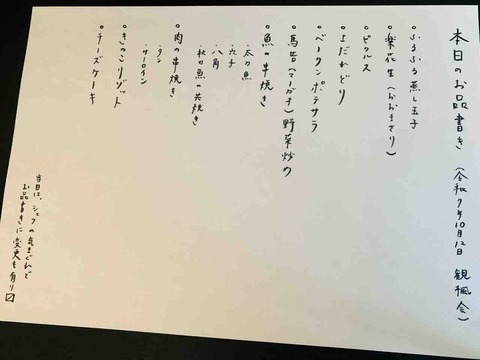 本日のお品書き（令和7年10月12日 観楓会）
・ふるふる蒸し玉子
・楽花生（おおまさり）
・ピクルス
・よだれどり
・ベーコンポテサラ
・馬告（マーガオ）野菜炒め
・魚の串焼き
・太刀魚
・穴子
・八角
・秋刀魚の共焼き
・肉の串焼き
・タン
・サーロイン
・きのこリゾット
・チーズケーキ
当日は、シェフの気まぐれで
お品書きに変更も有り〼